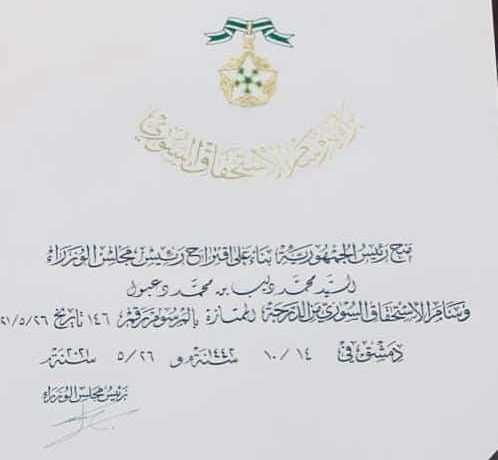 براءة وسام الاستحقاق السوري
منح رئيس الجمهورية بناء على اقتراح رئيس مجلس الوزراء
السيد محمد ديب بن محمد دعبول
وسام الاستحقاق السوري من الدرجة الممتازة بالمرسوم رقم ١٤٦ تاريخ ٢١/٥/٢٦
دمشق في ١٤ / ١٠ / ١٤٤٢ سنة و ٢٦ / ٥ / ٢٠٢١ سنة
رئيس مجلس الوزراء